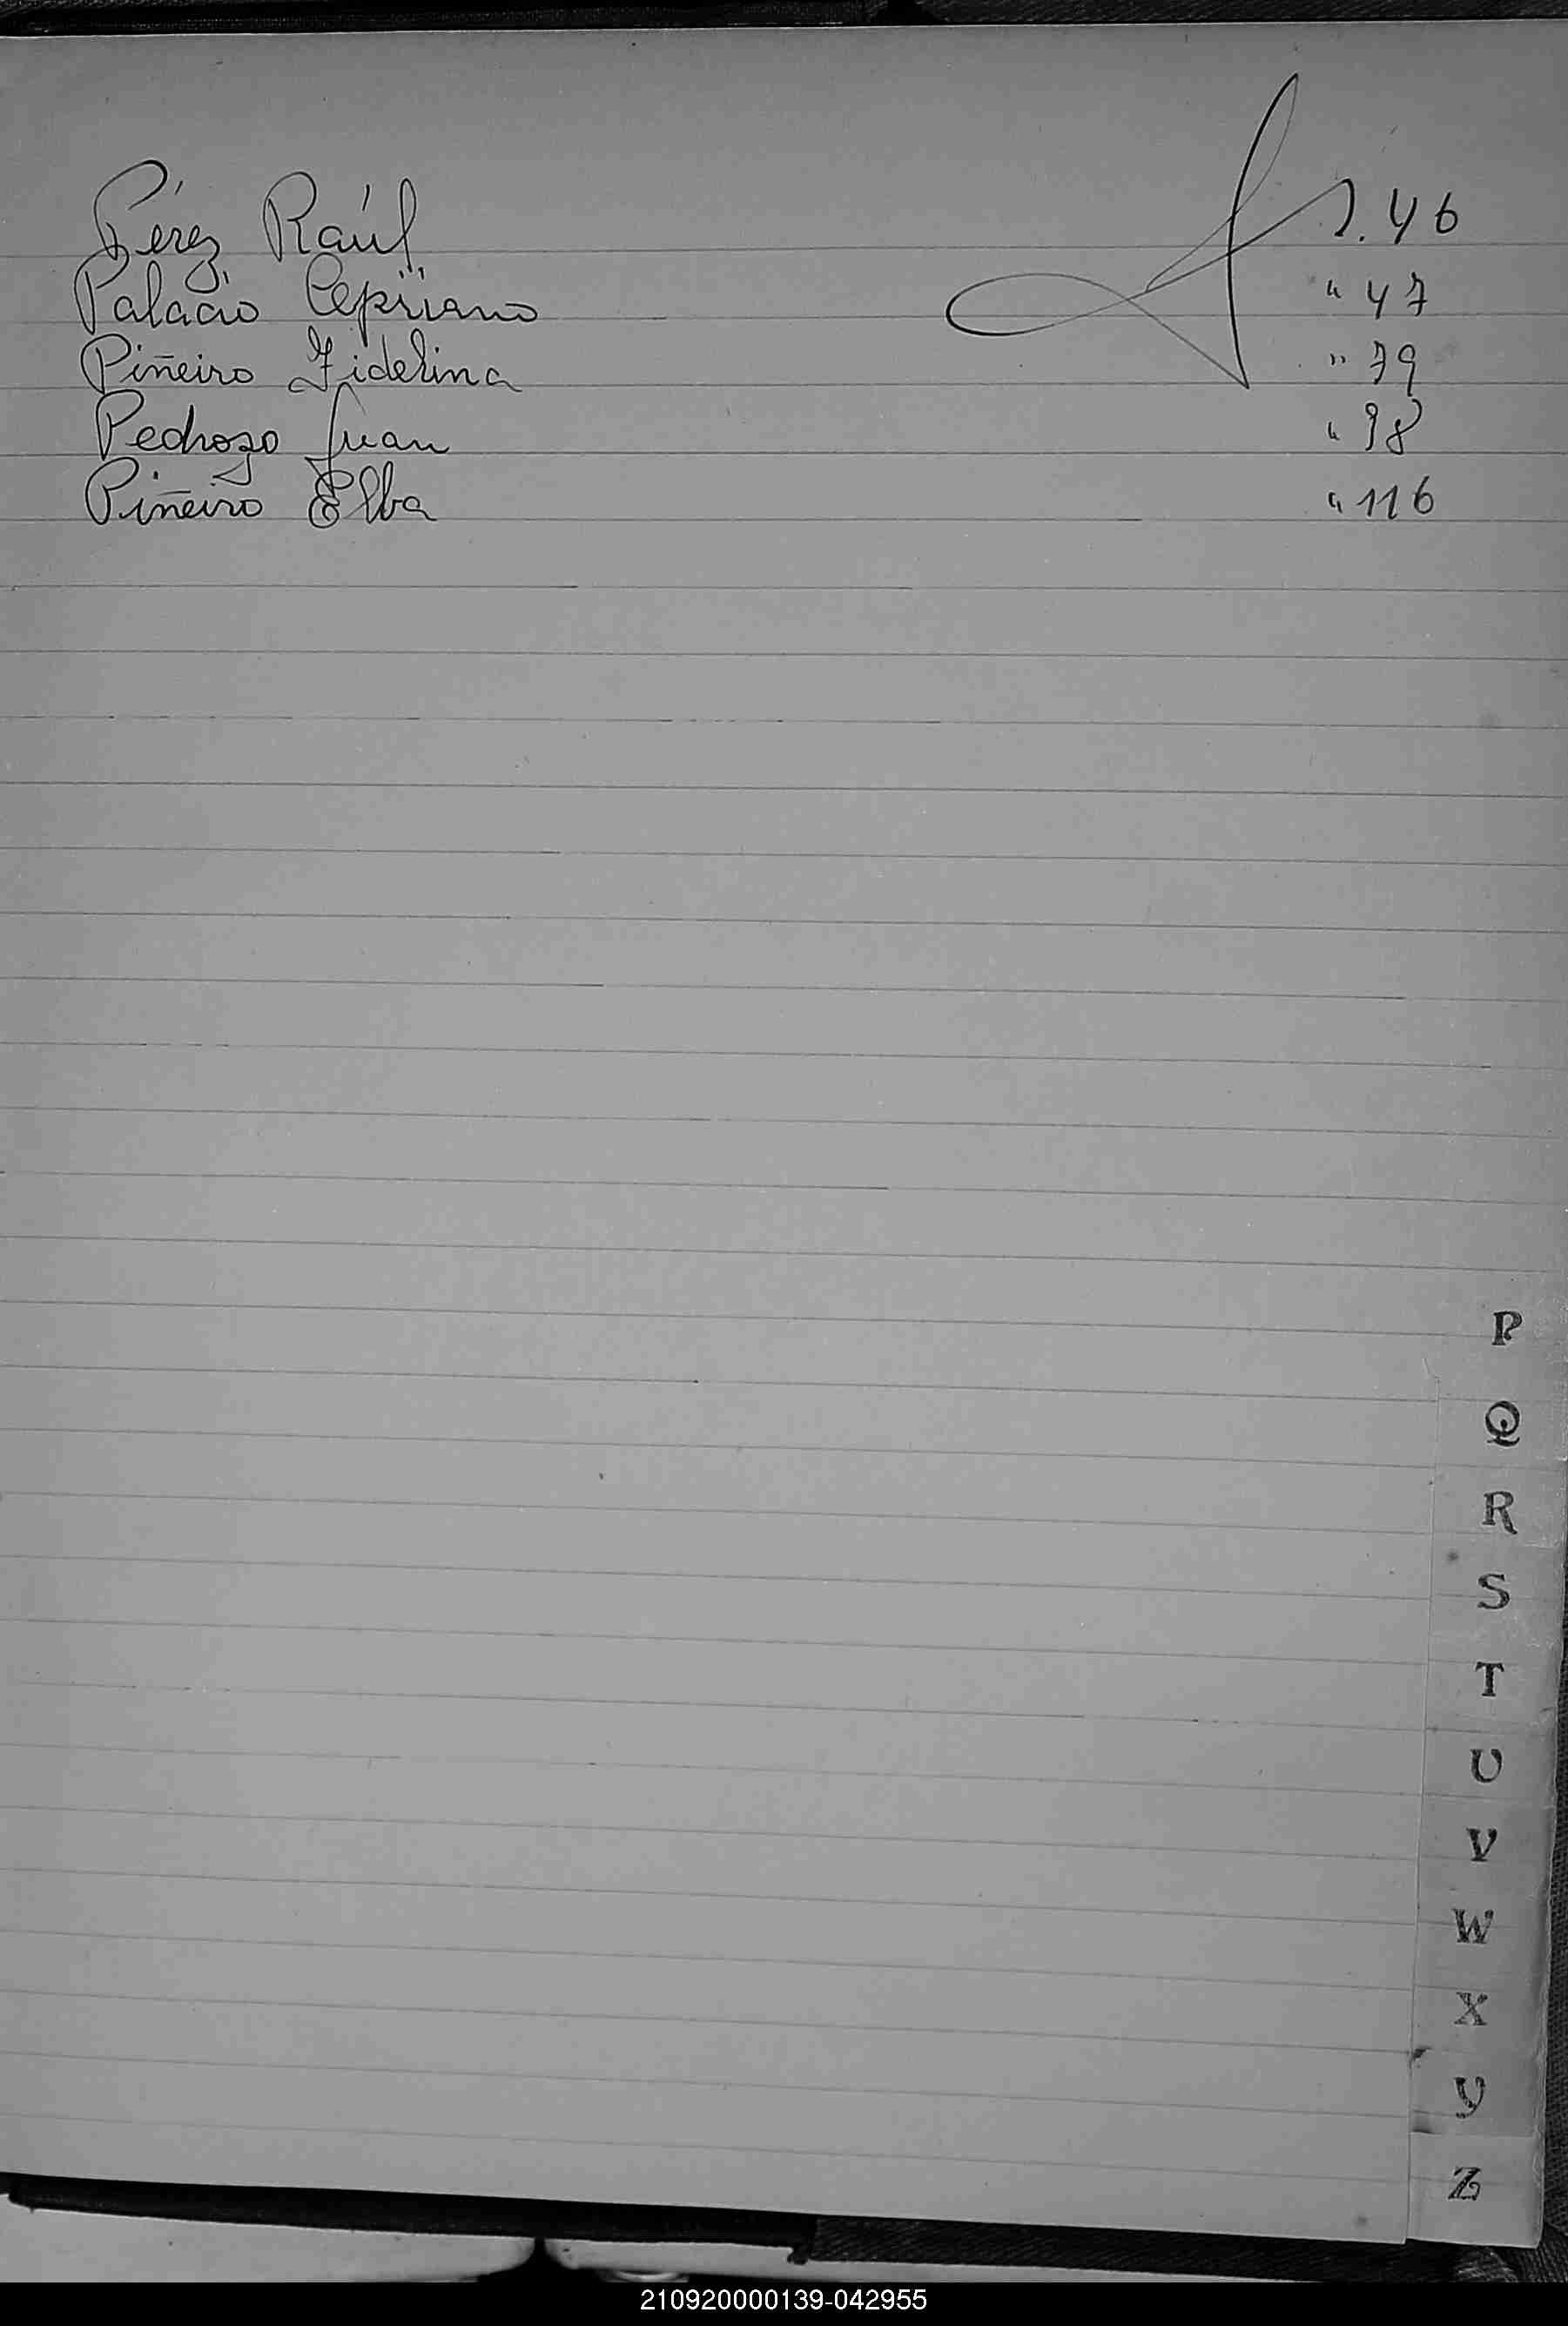 Pérez Raúl J. 46
Palacio Cepriano " 47
Piñeiro Fidelina " 79
Pedrozo Juan " 98
Piñeiro Elba " 116
P
Q
R
S
T
U
V
W
X
Y
Z
210920000139-042955